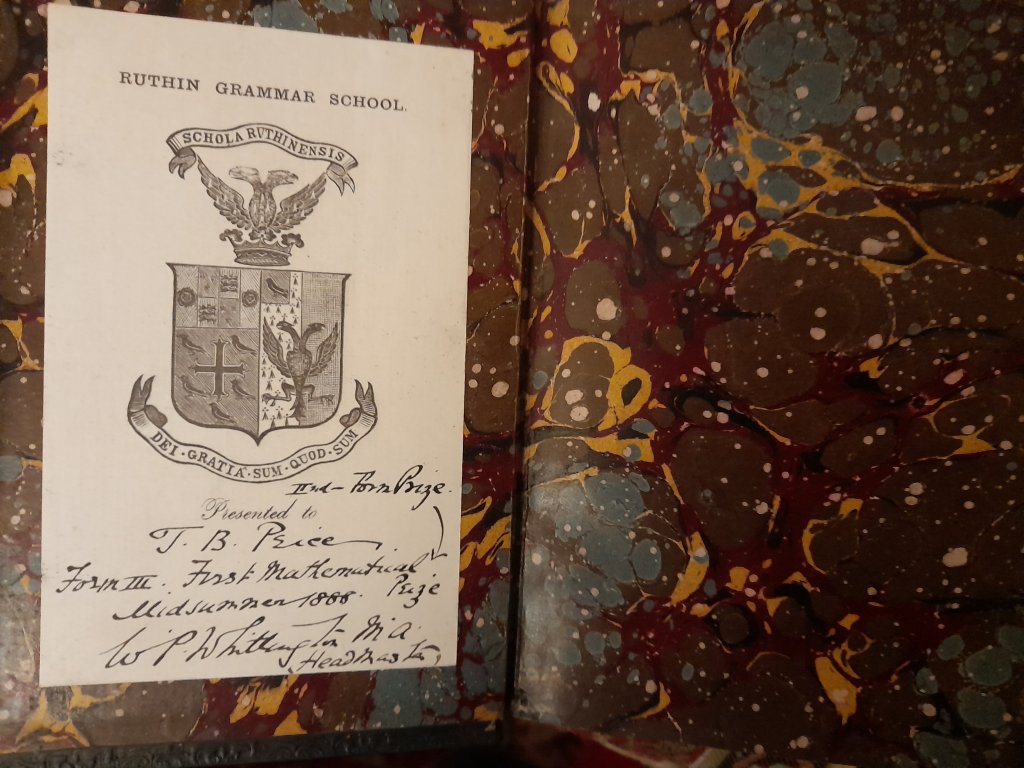 RUTHIN GRAMMAR SCHOOL.
SCHOLA RUTHINENSIS
DEI · GRATIÂ · SUM · QUOD · SUM
IInd - Form Prize.
Presented to
T. B. Price
Form III. First Mathematical Prize
Midsummer 1888.
W P. Whittington M.A.
Headmaster,